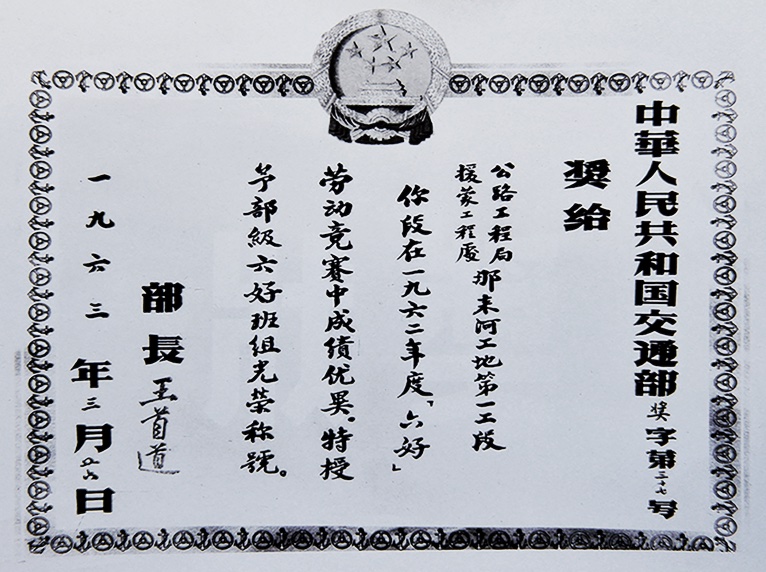 中華人民共和国交通部奖字第三十七号
奬给
公路工程局
援蒙工程處
那末河工地第一工段
你段在一九六二年度「六好」
劳动竞赛中成绩优異。特授
予部級六好班组光荣称號。
部長 王首道
一九六三年三月廿六日